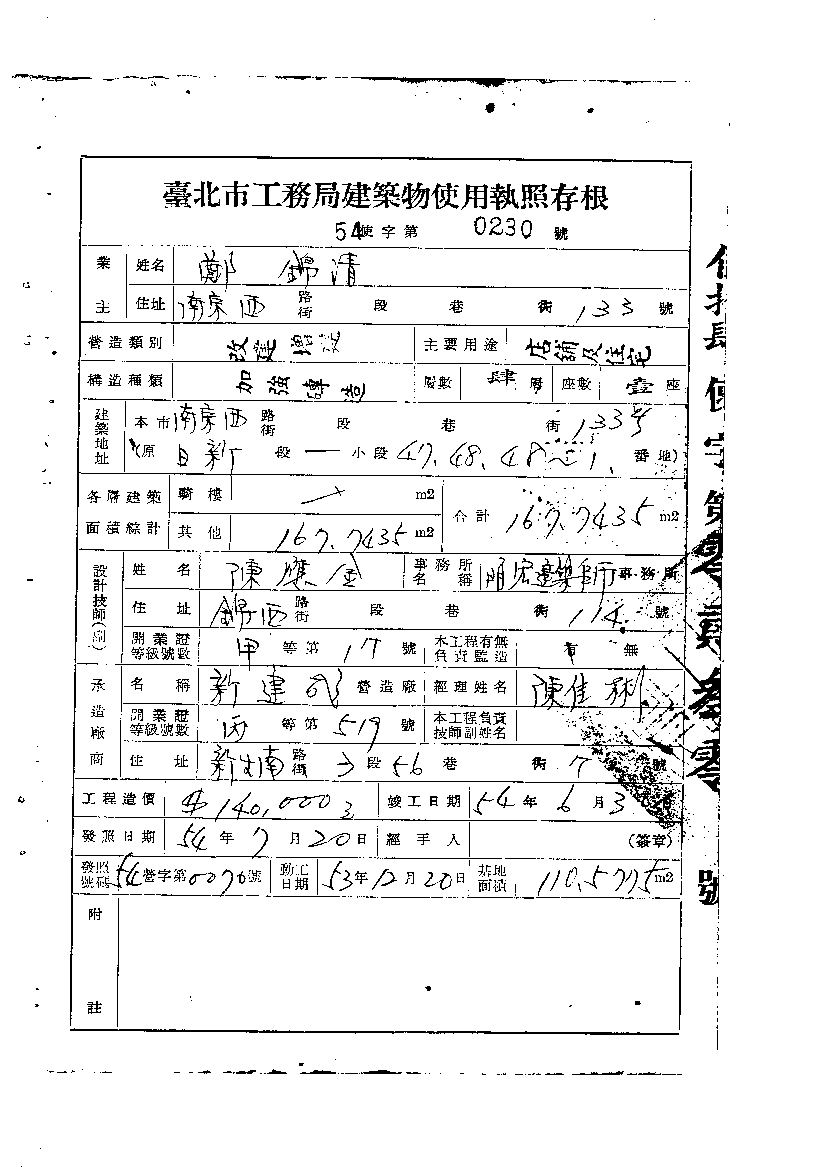 臺北市工務局建築物使用執照存根
54使字第 0230 號
業主 姓名 鄭 錦清
住址 南京西 路街 段 巷 街 133 號
營造類別 改建 增建 主要用途 店舖及住宅
構造種類 加強磚造 層數 肆 層 座數 壹 座
建築地址 本市 南京西 路街 段 巷 街 133號
(原 日新 段 一 小段 47.48.48~1. 番地)
各層建築面積綜計 騎樓 m2 合計 167.7435 m2
其他 167.7435 m2
設計技師(副) 姓名 陳應金 事務所名稱 建築師 事務所
住址 錦西 路街 段 巷 街 114 號
開業證等級號數 甲 等第 17 號 本工程有無負責監造 有 無
承造廠商 名稱 新建成 營造廠 經理姓名 陳佳彬
開業證等級號數 丙 等第 519 號 本工程負責技師副姓名
住址 新生南 路街 3 段 56 巷 街 7 號
工程造價 $140,000 竣工日期 54年 6月 3
發照日期 54年 7月20日 經手人 (簽章)
發照號碼 54營字第0070號 動工日期 53年12月20日 基地面積 110.5775 m2
附註
使字第零貳叁零號